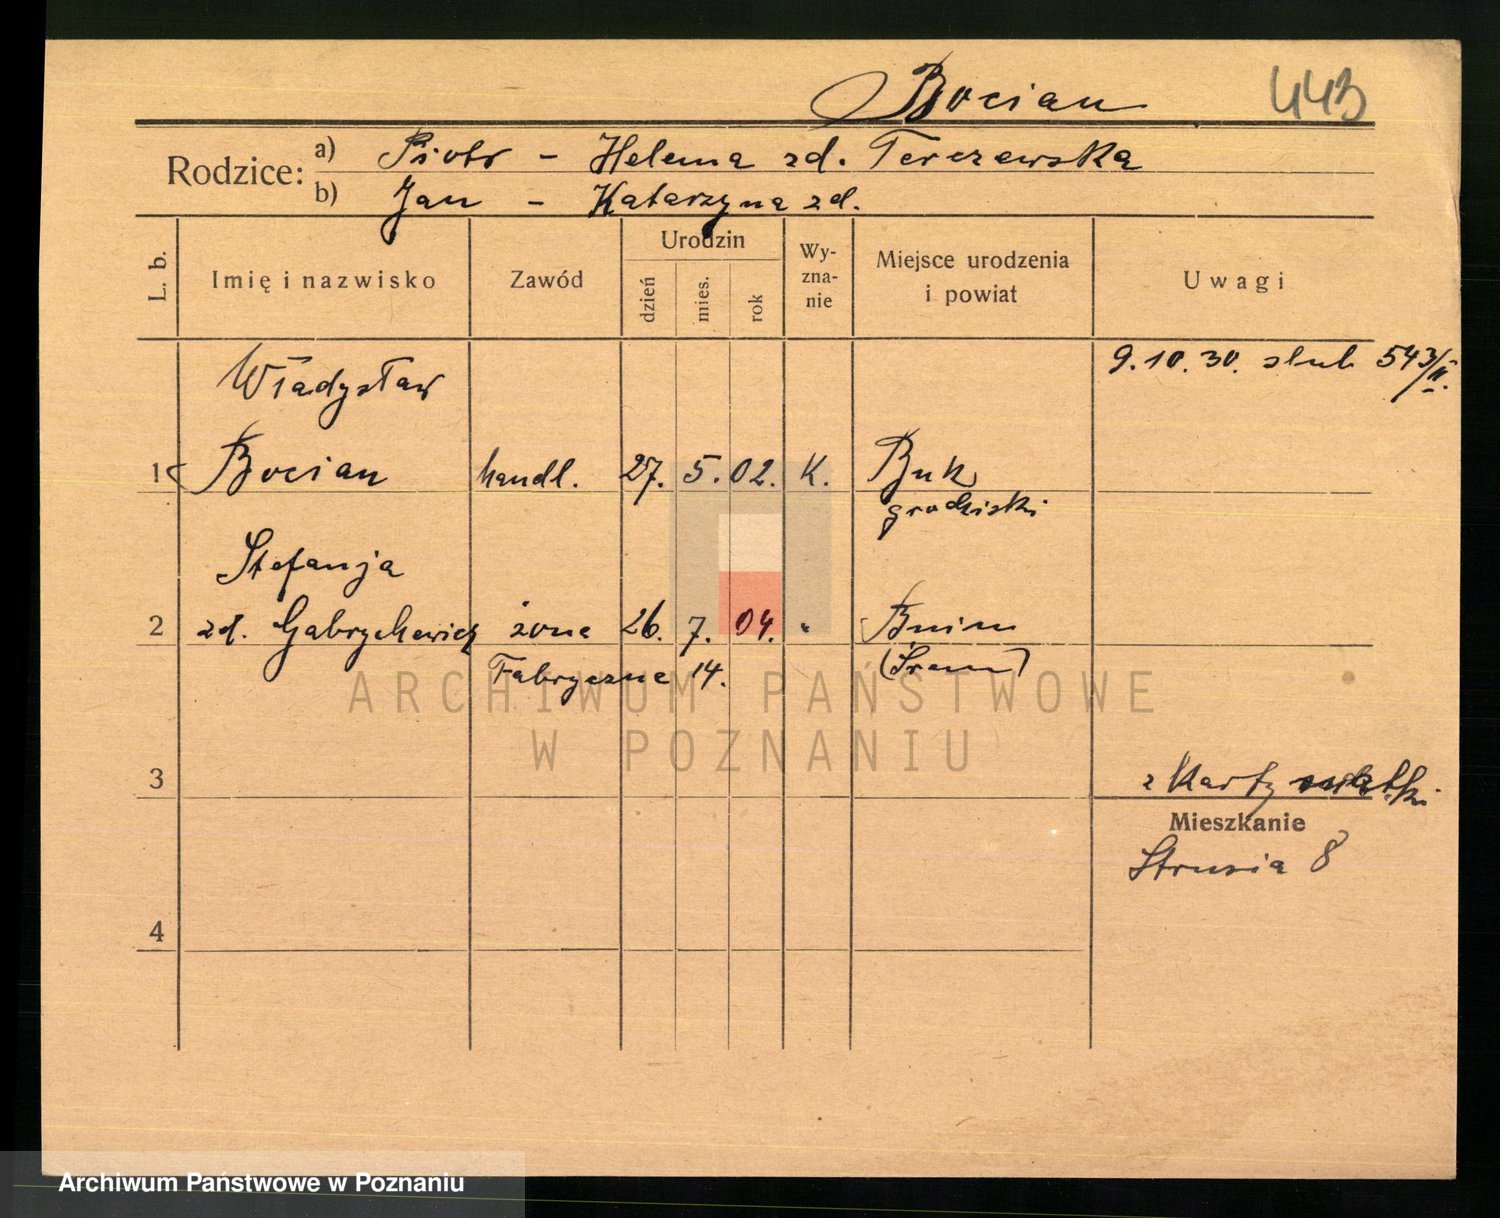 Bocian 443
Rodzice: a) Piotr - Helena zd. Terczewska
b) Jan - Katarzyna zd.
L. b. Imię i nazwisko Zawód Urodzin dzień mies. rok Wy-zna-nie Miejsce urodzenia i powiat Uwagi
Władysław 9.10.30. slub 543/II.
1 Bocian handl. 27. 5. 02. K. Buk
grodziski
Stefanja
2 zd. Gabrychewicz żona 26. 7. 04. " Bnin
Fabryczna 14. (Śrem)
ARCHIWUM PAŃSTWOWE
W POZNANIU
3 z Karty
Mieszkanie
Strusia 8
4
Archiwum Państwowe w Poznaniu